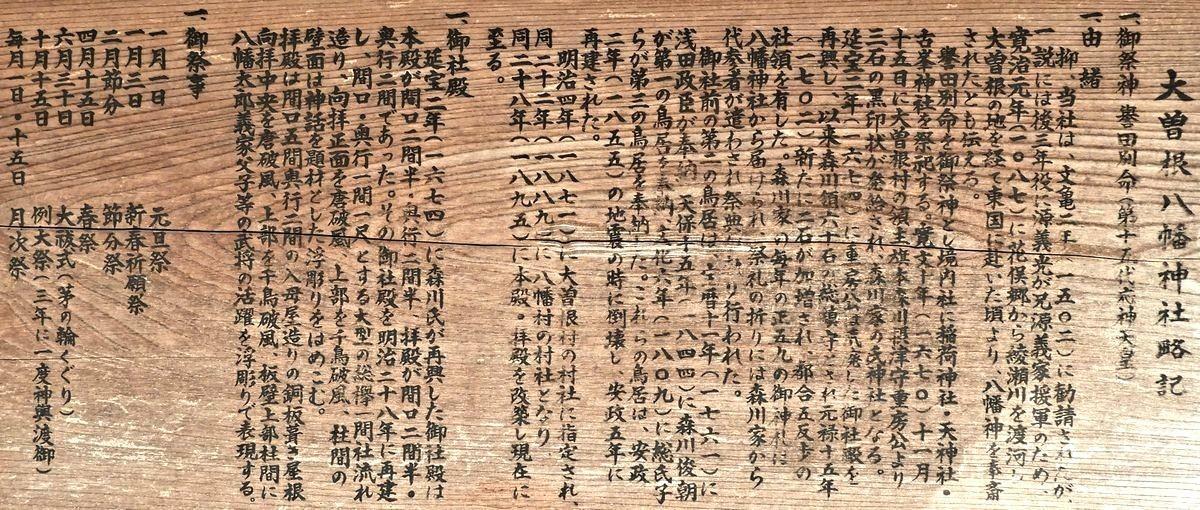 大曽根八幡神社略記
一、御祭神 誉田別命(第十五代応神天皇)
一、由緒
抑、当社は、文亀二年(一五〇二)に勧請されたが、
一説には後三年役に源義光が兄源義家援軍のため、
寛治元年(一〇八七)に花俣郷から綾瀬川を渡河し
大曽根の地を経て東国に赴いた頃より、八幡神を奉斎
されたとも伝える。
誉田別命を御祭神とし境内社に稲荷神社・天神社・
古峯神社を祭祀する。寛文十年(一六七〇)十一月
十五日に大曽根村の領主旗本森川摂津守重房公より
三石の黒印状が発給され、森川家の氏神社となる。
延宝二年(一六七四)に重房が した御社殿を
再興し、以来森川領六十石の総鎮守とされ元禄十五年
(一七〇二)新たに二石が加増され、都合五反歩の
社領を有した。森川家の毎年の正五九の御神札は
八幡神社から届けられ、祭礼の折りには森川家から
代参者が遣わされ祭典が 行われた。
御社前の第二の鳥居は、宝暦十一年(一七六一)に
浅田政臣が奉納、天保十五年(一八四四)に森川俊朝
が第一の鳥居を奉納、文化六年(一八〇九)に総氏子
らが第三の鳥居を奉納した。これらの鳥居は、安政
二年(一八五五)の地震の時に倒壊し、安政五年に
再建された。
明治四年(一八七一)に大曽根村の村社に指定され、
同二十二年(一八八九)に八幡村の村社となり、
同二十八年(一八九五)に本殿・拝殿を改築し現在に
至る。
一、御社殿
延宝二年(一六七四)に森川氏が再興した御社殿は
本殿が間口二間半・奥行二間半、拝殿が間口二間半・
奥行二間であった。その御社殿を明治二十八年に再建
し、間口・奥行一間一尺とする大型の総欅一間社流れ
造り、向拝正面を唐破風、上部を千鳥破風、柱間の
壁面は神話を題材とした浮彫りをはめこむ。
拝殿は間口五間奥行二間の入母屋造りの銅板葺き屋根
向拝中央を唐破風、上部を千鳥破風、板壁上部柱間に
八幡太郎義家父子等の武将の活躍を浮彫りで表現する。
一、御祭事
一月一日 元旦祭
一月三日 新春祈願祭
二月節分 節分祭
四月十五日 春祭
六月三十日 大祓式(茅の輪くぐり)
十月十五日 例大祭(三年に一度神輿渡御)
毎月一日・十五日 月次祭